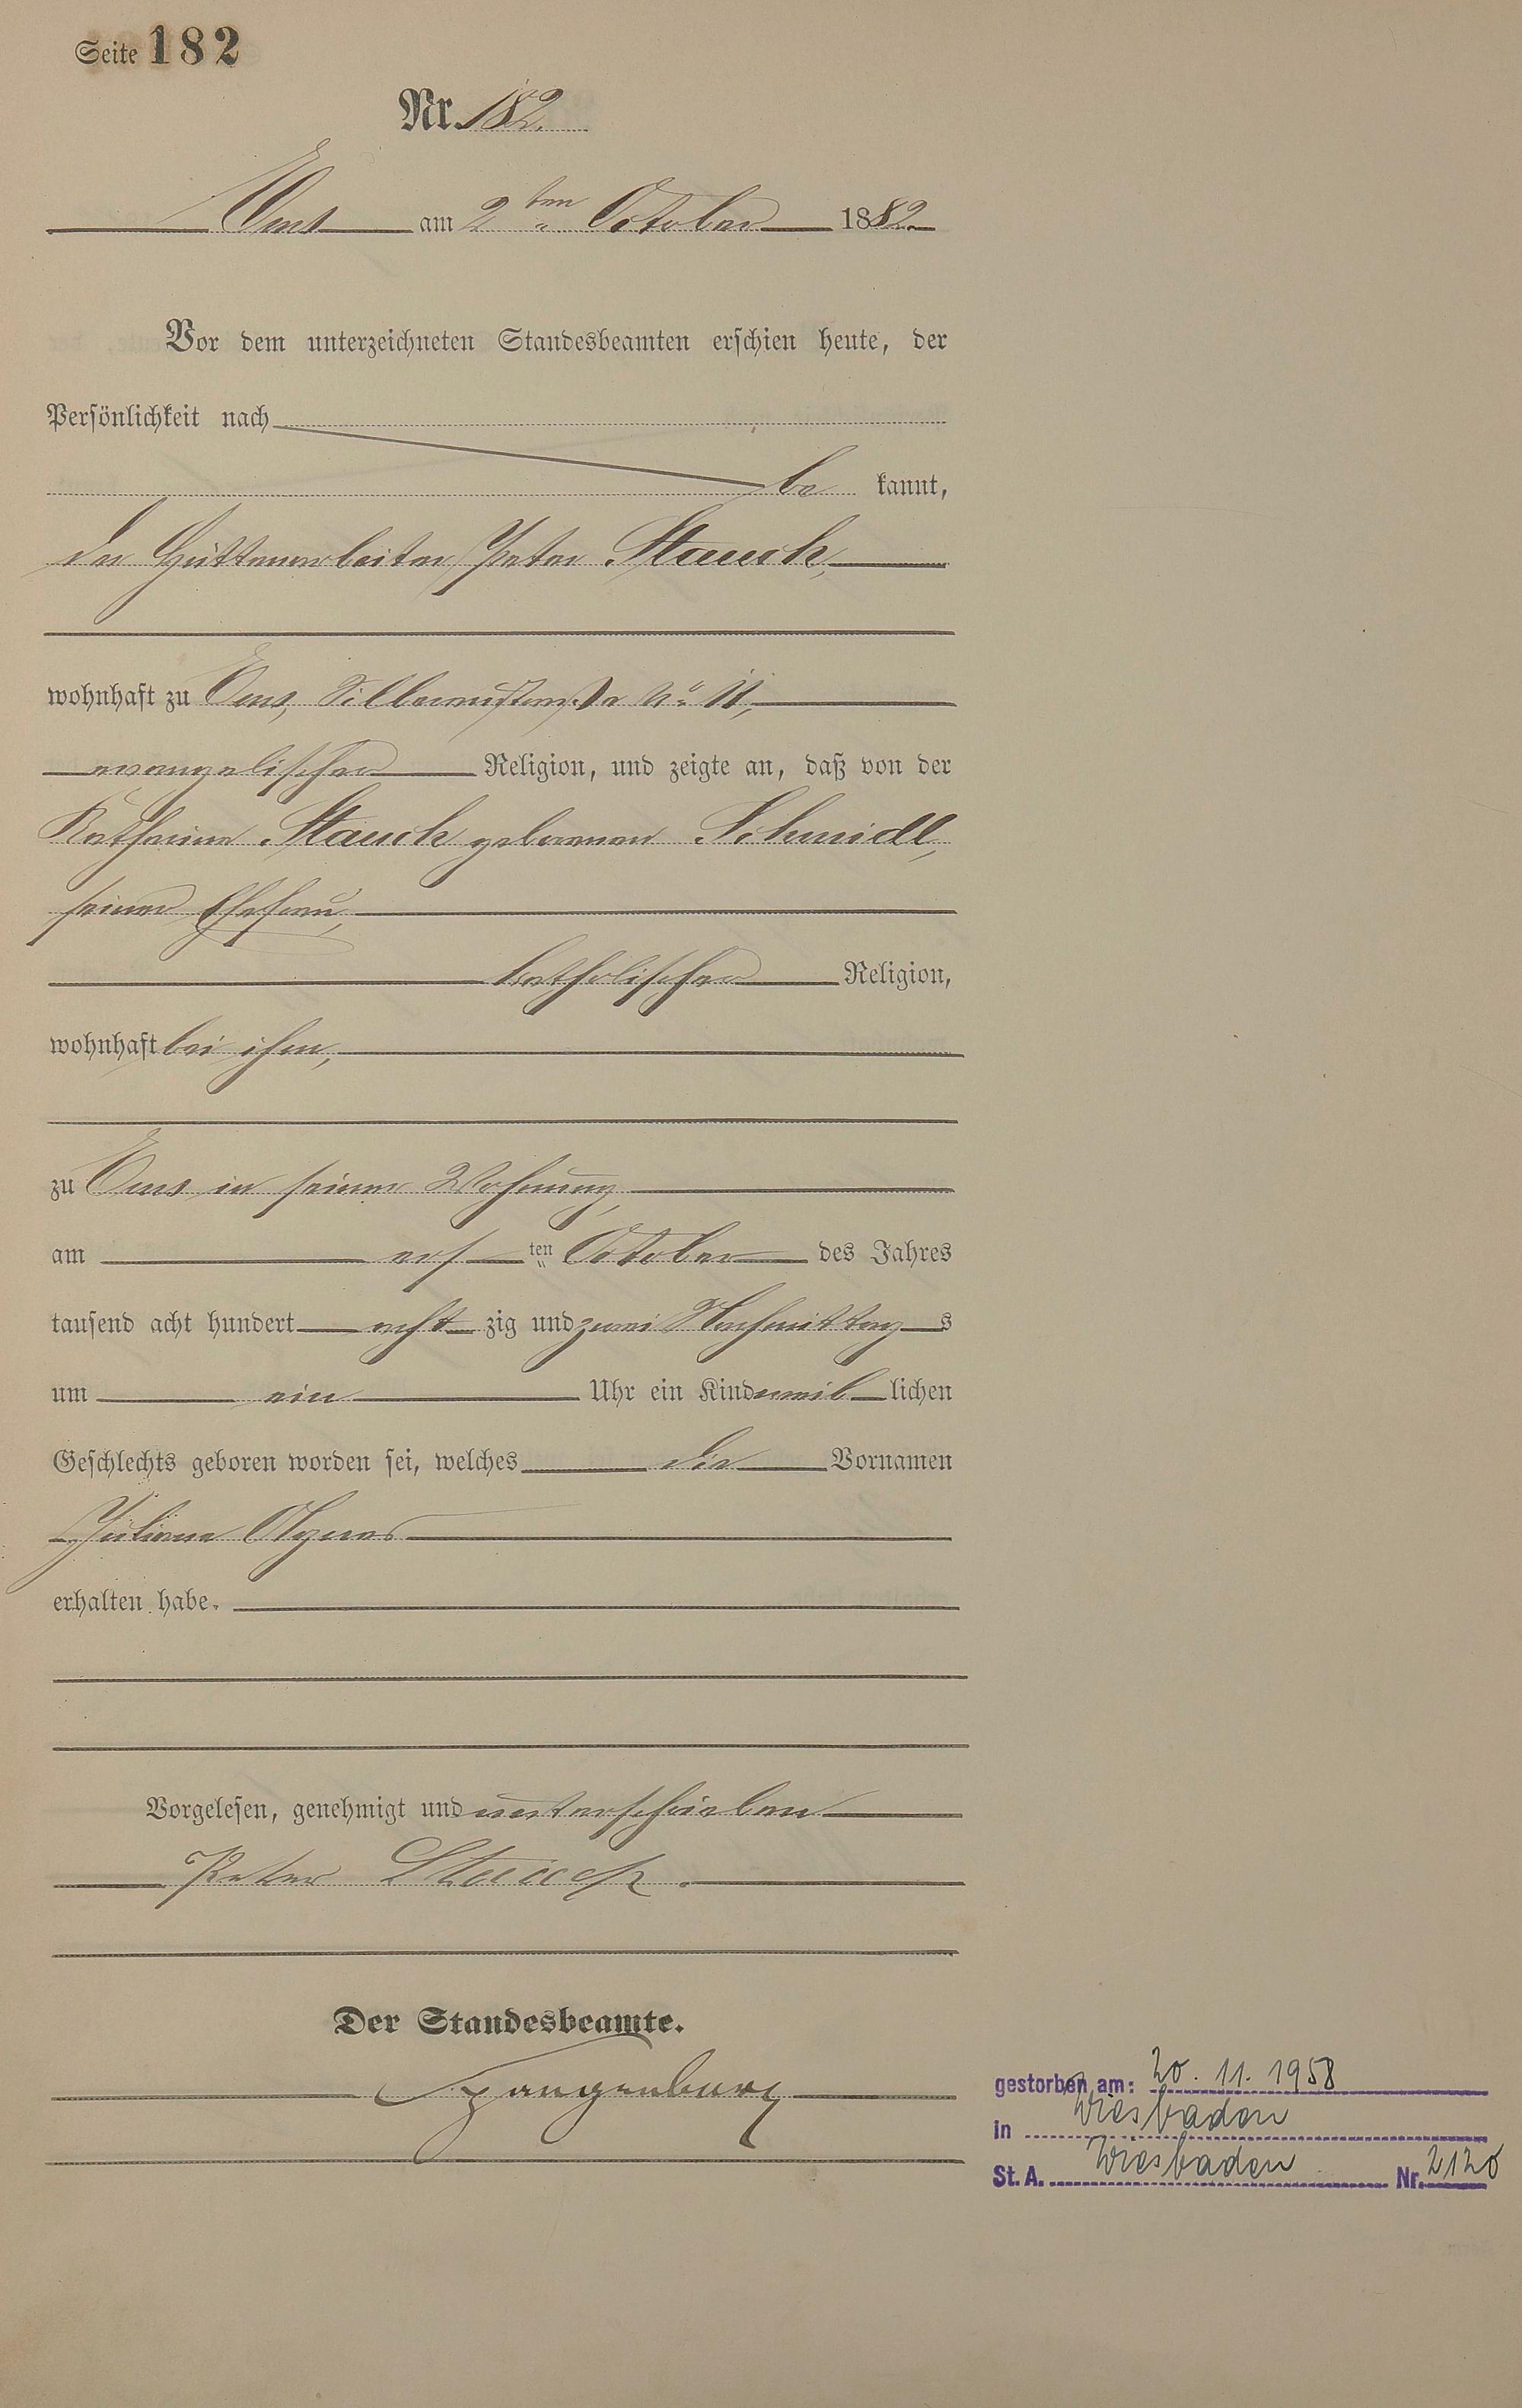 Seite 182
Nr. 182.
Ems am 2ten October 1882.
Vor dem unterzeichneten Standesbeamten erschien heute, der
Persönlichkeit nach
be kannt,
der Hüttenarbeiter Peter Stauch,
wohnhaft zu Ems, Silberaustraße No 11,
evangelischer Religion, und zeigte an, daß von der
Katharina Stauch geborenen Schmidt,
seiner Ehefrau,
katholischer Religion,
wohnhaft bei ihm,
zu Ems in seiner Wohnung,
am ersten October des Jahres
tausend acht hundert acht zig und zwei Nachmittags
um ein Uhr ein Kind weiblichen
Geschlechts geboren worden sei, welches die Vornamen
Juliana Agnes
erhalten habe.
Vorgelesen, genehmigt und unterschrieben
Peter Stauch.
Der Standesbeamte.
Spangenberg
gestorben am: 20. 11. 1958
in Wiesbaden
St. A. Wiesbaden Nr. 2120